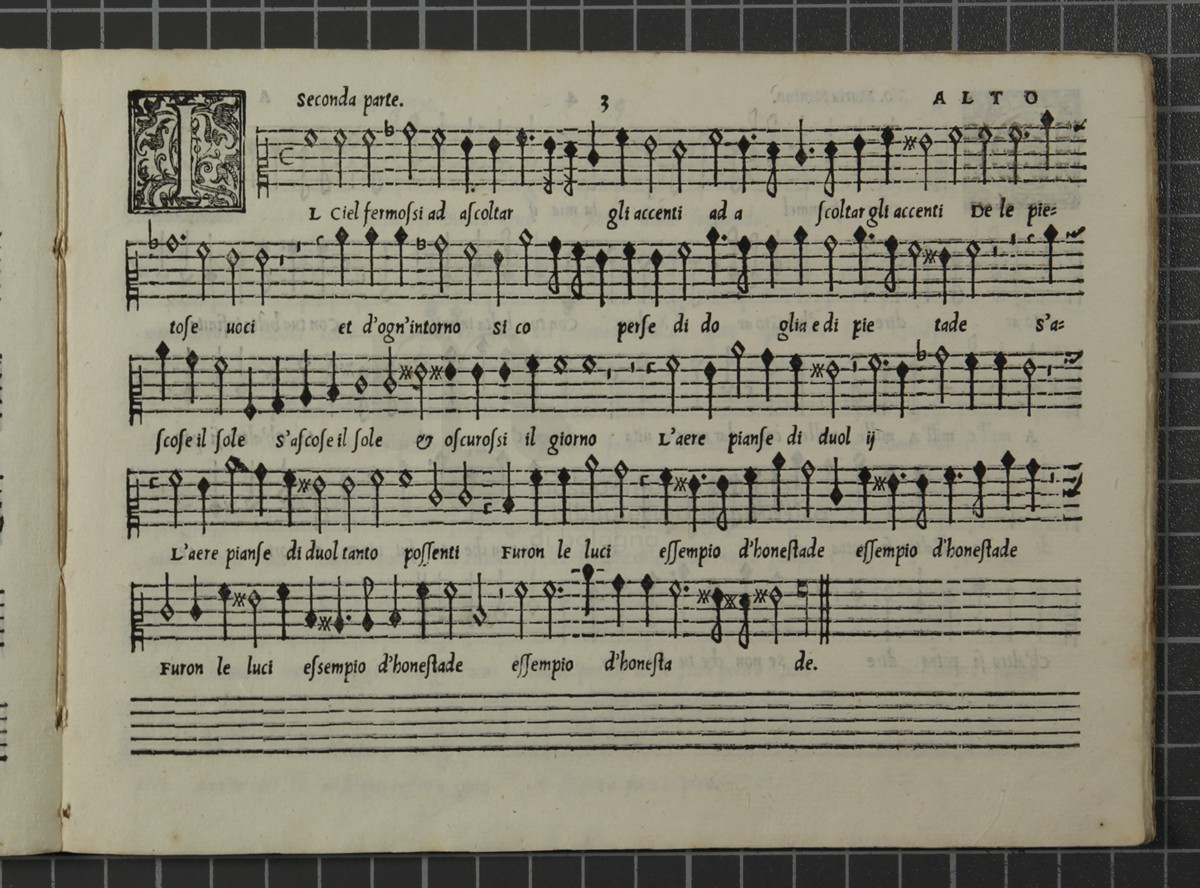 Seconda parte. 3 ALTO
IL Ciel fermoſsi ad aſcoltar gli accenti ad a ſcoltar gli accenti De le pie=
toſe uoci et d'ogn'intorno si co perſe di do glia e di pie tade s'a=
ſcoſe il ſole s'aſcoſe il ſole & oſcuroſsi il giorno L'aere pianſe di duol ij
L'aere pianſe di duol tanto poſſenti Furon le luci eſſempio d'honeſtade eſſempio d'honeſtade
Furon le luci eſsempio d'honeſtade eſſempio d'honeſta de.